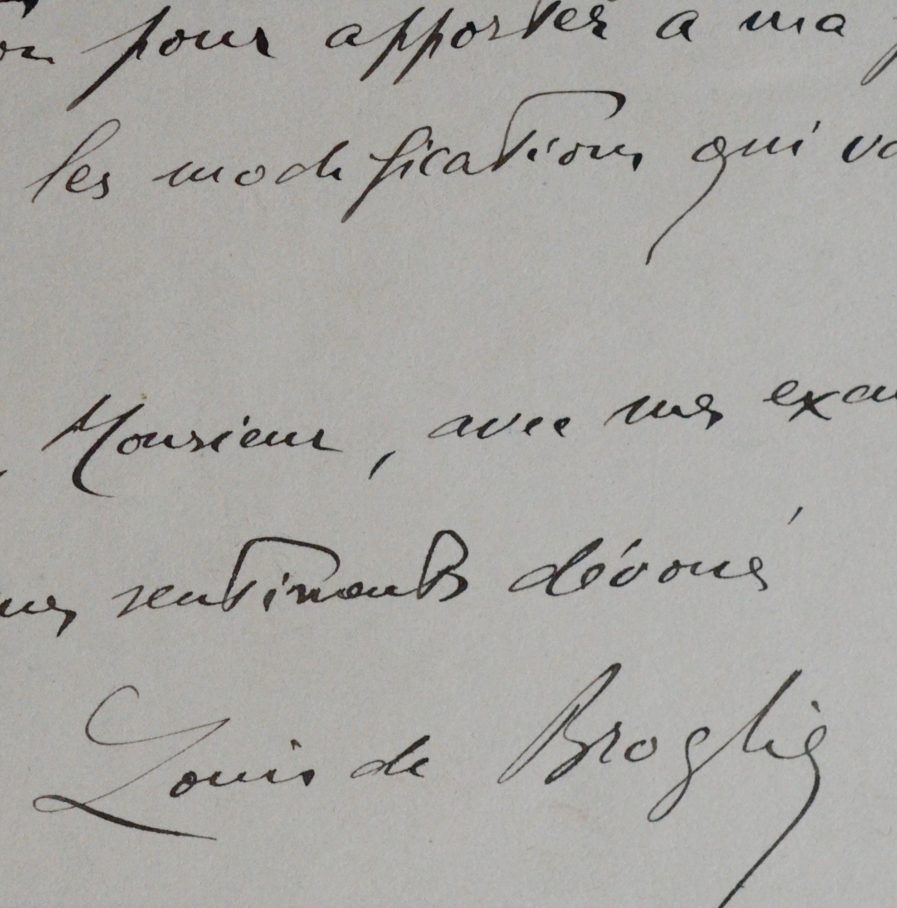 pour apporter a ma
les modifications qui
, Monsieur, avec mes
mes sentiments dévoués
Louis de Broglie